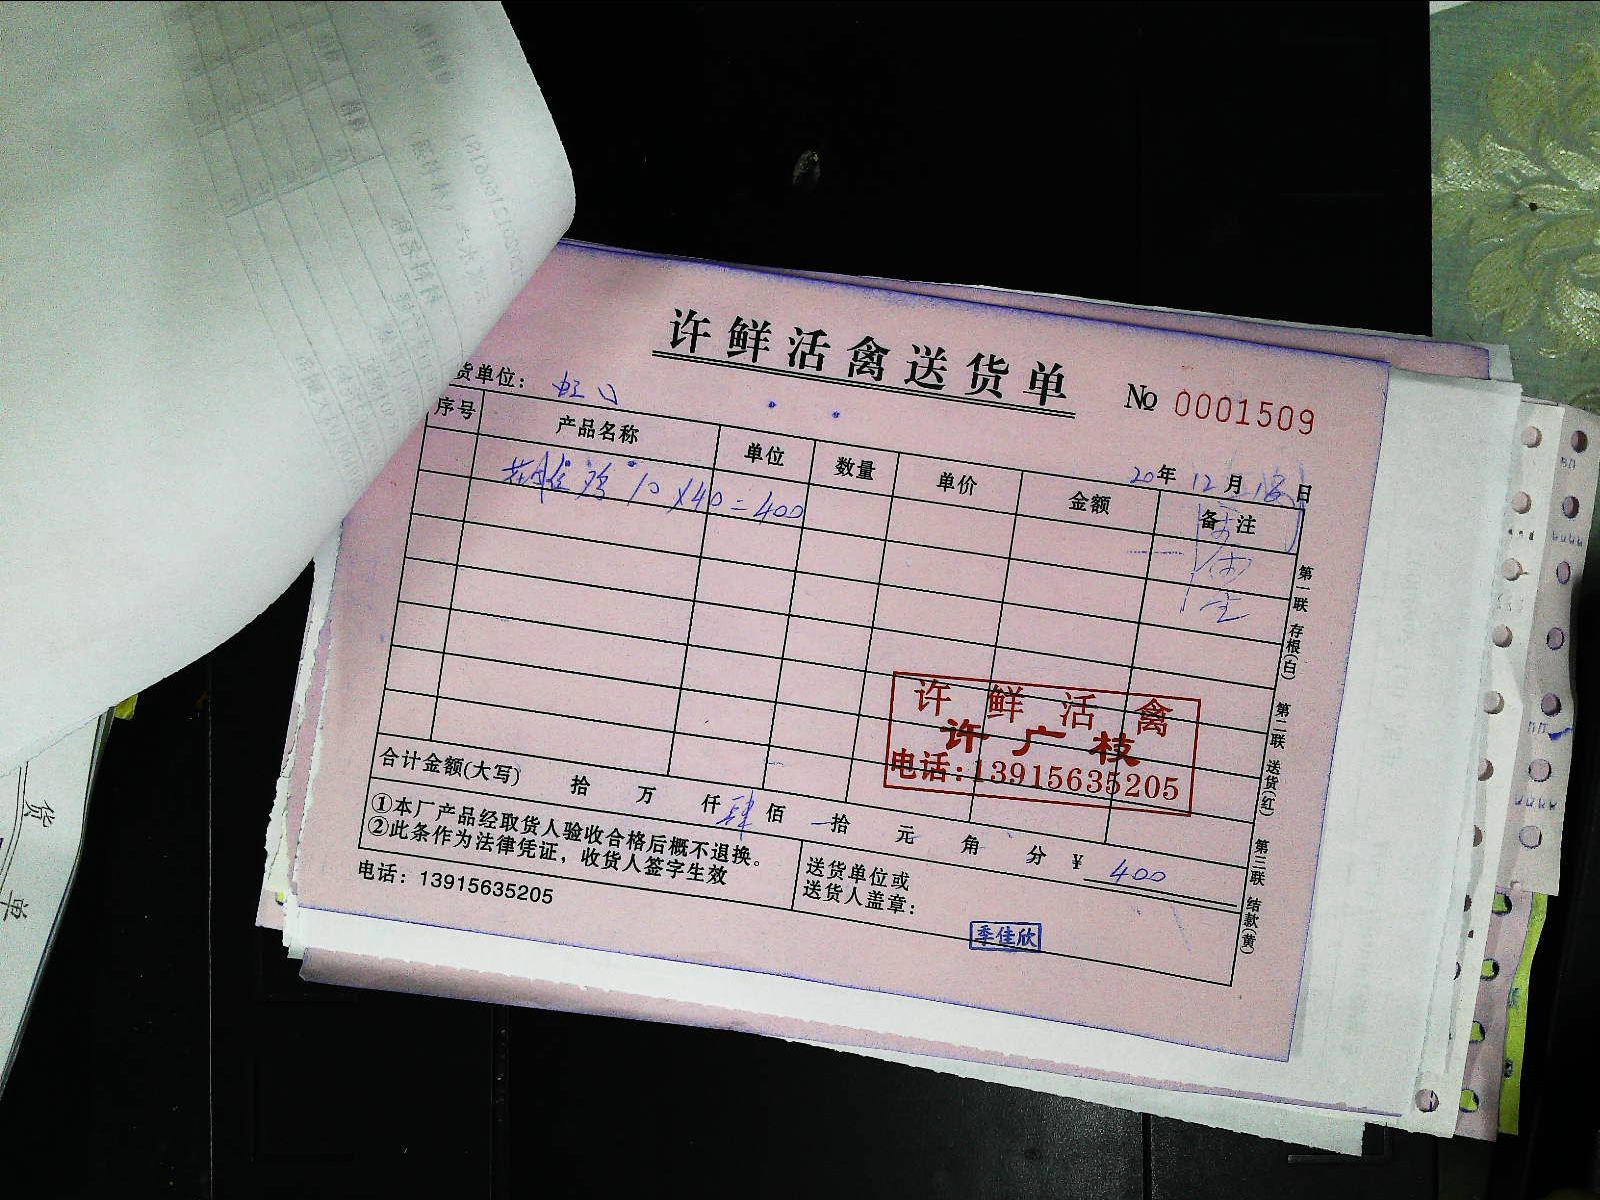 许鲜活禽送货单
No 0001509
货单位：虹口
20年 12月 18日
序号 产品名称 单位 数量 单价 金额 备注
鸡 10 X40=400
第一联 存根(白) 第二联 送货(红) 第三联 结款(黄)
许鲜活禽
许广枝
电话:13915635205
合计金额(大写) 拾 万 仟 肆 佰 拾 元 角 分 ¥ 400
①本厂产品经取货人验收合格后概不退换。
②此条作为法律凭证，收货人签字生效
送货单位或
送货人盖章：
季佳欣
电话：13915635205
货
单